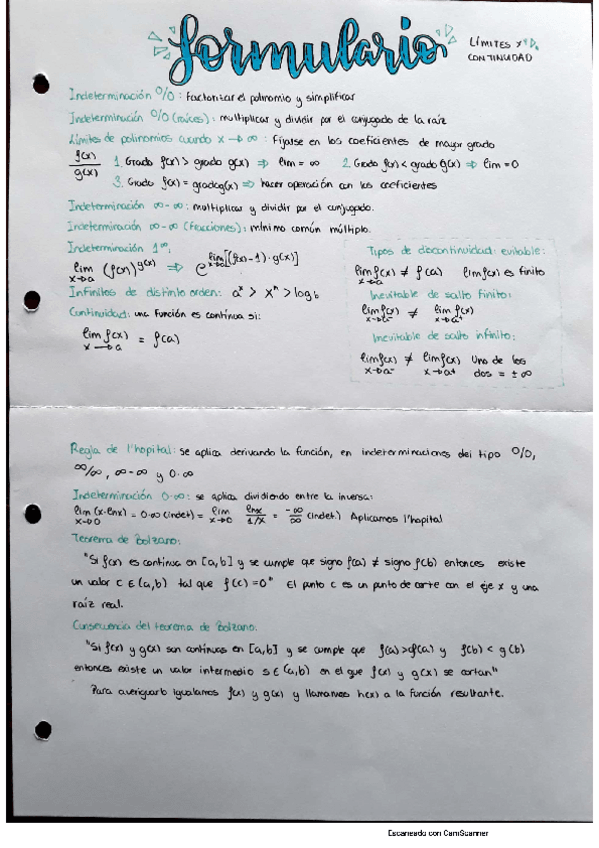 formulario
LÍMITES Y
CONTINUIDAD
Indeterminación 0/0: factorizar el polinomio y simplificar
Indeterminación 0/0 (raíces): multiplicar y dividir por el conjugado de la raíz
Límites de polinomios cuando x → ∞: Fijarse en los coeficientes de mayor grado
f(x)/g(x) 1. Grado f(x) > grado g(x) ⇒ lim = ∞ 2. Grado f(x) < grado g(x) ⇒ lim = 0
3. Grado f(x) = grado g(x) ⇒ hacer operación con los coeficientes
Indeterminación ∞-∞: multiplicar y dividir por el conjugado.
Indeterminación ∞-∞ (fracciones): mínimo común múltiplo.
Indeterminación 1^∞:
lim x→a (f(x))^g(x) ⇒ e^lim x→a [(f(x)-1)·g(x)]
Infinitos de distinto orden: a^x > x^n > log b
Continuidad: una función es continua si:
lim f(x) x→a = f(a)
Tipos de discontinuidad: evitable:
lim f(x) x→a ≠ f(a) lim f(x) es finito
Inevitable de salto finito:
lim f(x) x→a- ≠ lim f(x) x→a+
Inevitable de salto infinito:
lim f(x) x→a- ≠ lim f(x) x→a+ Uno de los
dos = ± ∞
Regla de l'hopital: se aplica derivando la función, en indeterminaciones del tipo 0/0,
∞/∞, ∞-∞ y 0·∞
Indeterminación 0·∞: se aplica dividiendo entre la inversa:
lim x→0 (x·lnx) = 0·∞ (indet.) = lim x→0 lnx/1/x = -∞/∞ (indet.) Aplicamos l'hopital
Teorema de Bolzano:
"Si f(x) es continua en [a,b] y se cumple que signo f(a) ≠ signo f(b) entonces existe
un valor c ∈ (a,b) tal que f(c) =0" El punto c es un punto de corte con el eje x y una
raíz real.
Consecuencia del teorema de Bolzano:
"Si f(x) y g(x) son continuas en [a,b] y se cumple que f(a)>g(a) y f(b) < g(b)
entonces existe un valor intermedio s ∈ (a,b) en el que f(x) y g(x) se cortan"
Para averiguarlo igualamos f(x) y g(x) y llamamos h(x) a la función resultante.
Escaneado con CamScanner